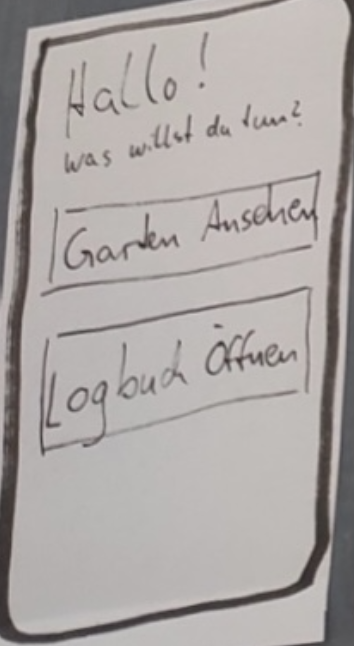 Hallo!
Was willst du tun?
Garten Ansehen
Logbuch Öffnen